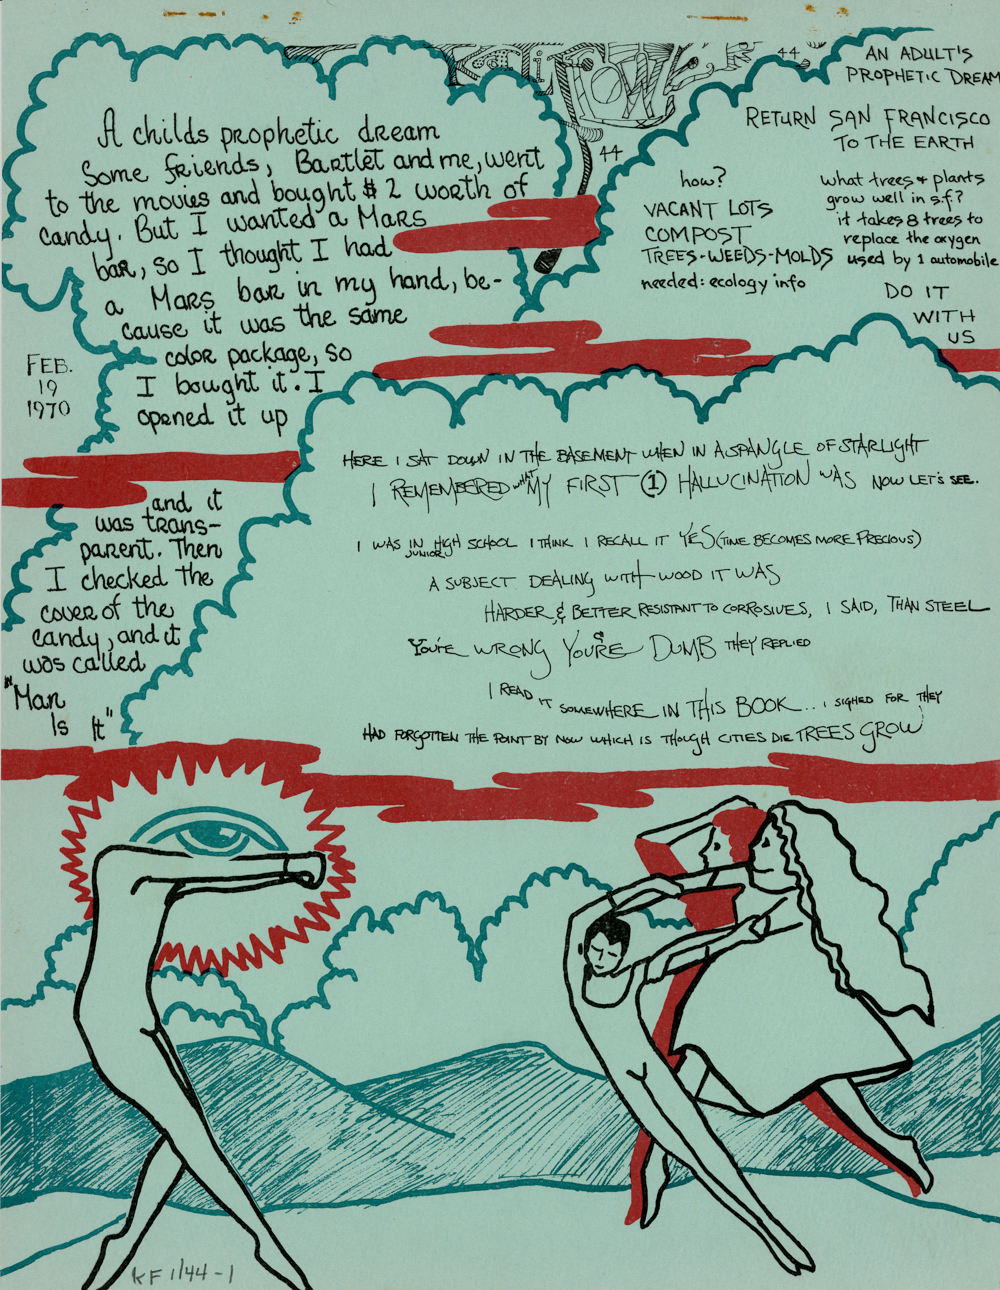 Kaliflower
44
44
A childs prophetic dream
Some friends, Bartlet and me, went
to the movies and bought $2 worth of
candy. But I wanted a Mars
bar, so I thought I had
a Mars bar in my hand, be-
cause it was the same
color package, so
I bought it. I
opened it up
and it
was trans-
parent. Then
I checked the
cover of the
candy, and it
was called
"Man
Is It"
FEB.
19
1970
AN ADULT'S
PROPHETIC DREAM
RETURN SAN FRANCISCO
TO THE EARTH
how?
VACANT LOTS
COMPOST
TREES-WEEDS-MOLDS
needed: ecology info
what trees + plants
grow well in s.f.?
it takes 8 trees to
replace the oxygen
used by 1 automobile
DO IT
WITH
US
HERE I SAT DOWN IN THE BASEMENT WHEN IN A SPANGLE OF STARLIGHT
I REMEMBERED WHAT MY FIRST (1) HALLUCINATION WAS NOW LET'S SEE.
I WAS IN JUNIOR HIGH SCHOOL I THINK I RECALL IT YES (TIME BECOMES MORE PRECIOUS)
A SUBJECT DEALING WITH WOOD IT WAS
HARDER & BETTER RESISTANT TO CORROSIVES, I SAID, THAN STEEL
YOU'RE WRONG & YOU'RE DUMB THEY REPLIED
I READ IT SOMEWHERE IN THIS BOOK... I SIGHED FOR THEY
HAD FORGOTTEN THE POINT BY NOW WHICH IS THOUGH CITIES DIE TREES GROW
KF 1/44-1